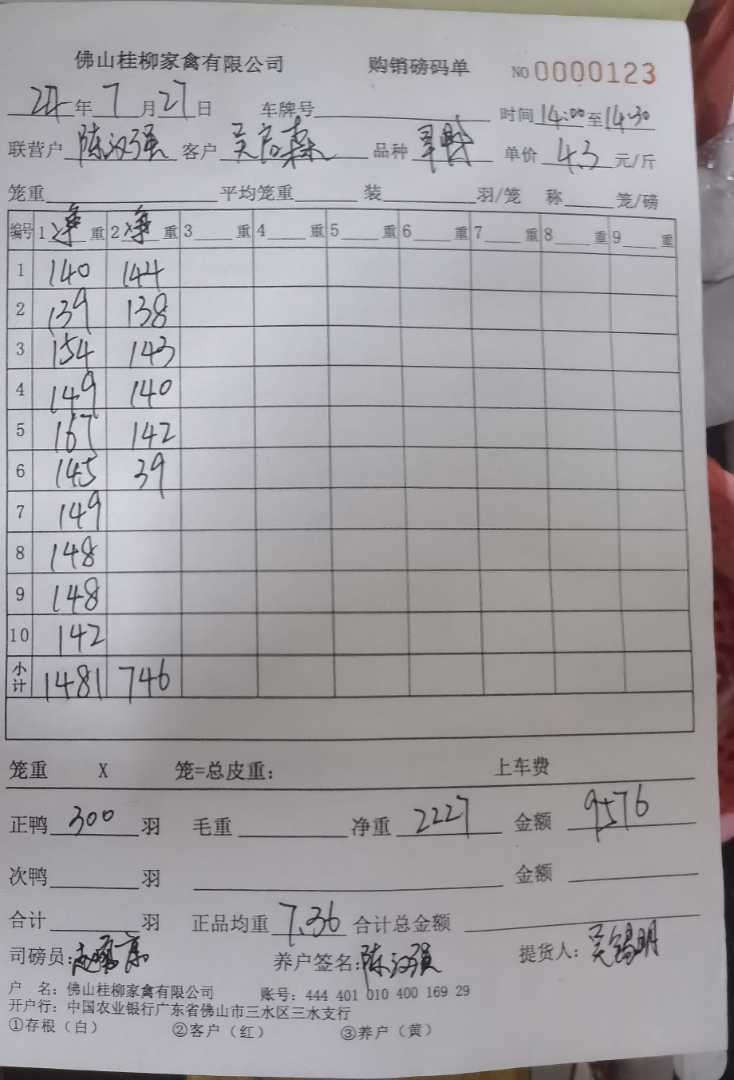 佛山桂柳家禽有限公司 购销磅码单 NO 0000123
24年7月27日 车牌号 时间14:00至14:30
联营户 陈汉强 客户 吴 森 品种 单价 4.3 元/斤
笼重 平均笼重 装 羽/笼 称 笼/磅
编号 1 净 重 2 净 重 3 重 4 重 5 重 6 重 7 重 8 重 9 重
1 140 144
2 139 138
3 154 143
4 149 140
5 167 142
6 145 39
7 149
8 148
9 148
10 142
小计 1481 746
笼重 X 笼=总皮重: 上车费
正鸭 300 羽 毛重 净重 2227 金额 9576
次鸭 羽 金额
合计 羽 正品均重 7.36 合计总金额
司磅员: 养户签名: 陈汉强 提货人: 吴锡明
户 名: 佛山桂柳家禽有限公司 账号: 444 401 010 400 169 29
开户行: 中国农业银行广东省佛山市三水区三水支行
①存根(白) ②客户(红) ③养户(黄)